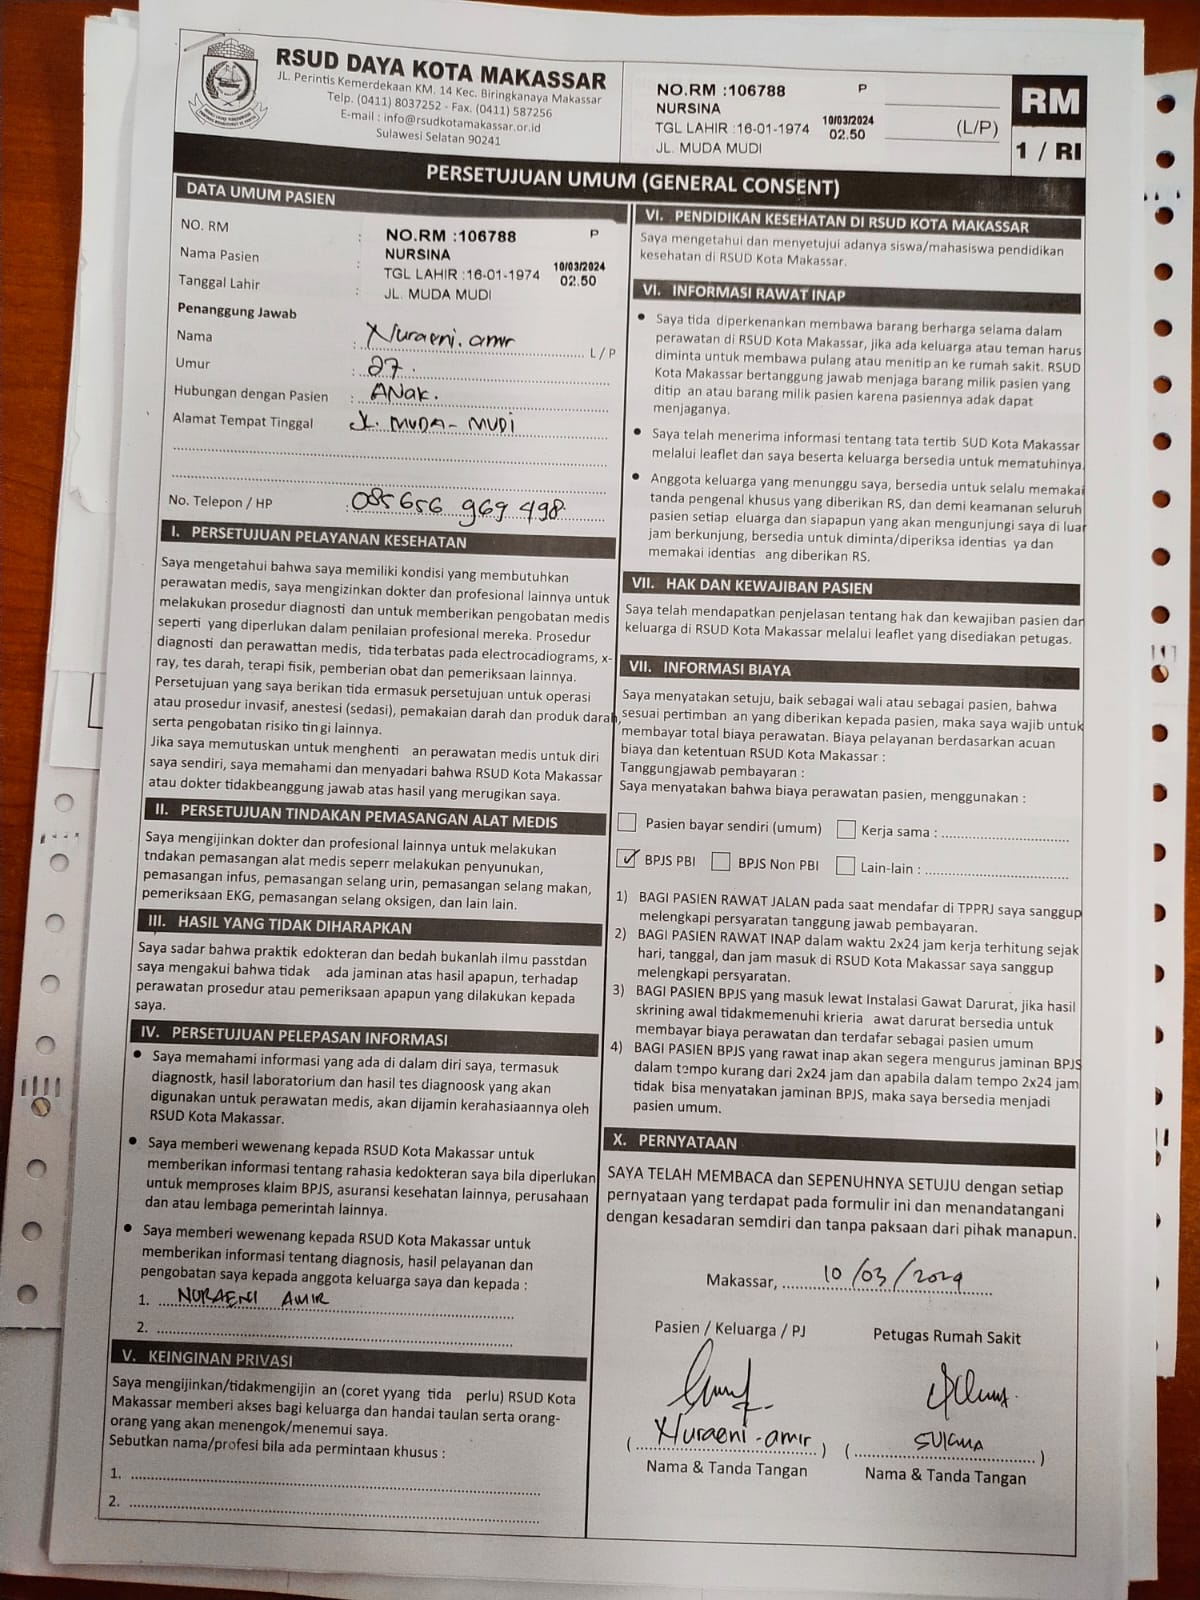 RSUD DAYA KOTA MAKASSAR
JL. Perintis Kemerdekaan KM. 14 Kec. Biringkanaya Makassar
Telp. (0411) 8037252 - Fax. (0411) 587256
E-mail : info@rsudkotamakassar.or.id
Sulawesi Selatan 90241
NO.RM :106788 P
NURSINA
TGL LAHIR :16-01-1974 10/03/2024 02.50
JL. MUDA MUDI
(L/P)
RM
1 / RI
PERSETUJUAN UMUM (GENERAL CONSENT)
DATA UMUM PASIEN
NO. RM : NO.RM :106788 P
Nama Pasien : NURSINA
Tanggal Lahir : TGL LAHIR :16-01-1974 10/03/2024 02.50
JL. MUDA MUDI
Penanggung Jawab
Nama : Nuraeni. amir L / P
Umur : 27.
Hubungan dengan Pasien : ANak.
Alamat Tempat Tinggal JL. MUDA - MUDI
No. Telepon / HP : 085 656 969 498
I. PERSETUJUAN PELAYANAN KESEHATAN
Saya mengetahui bahwa saya memiliki kondisi yang membutuhkan
perawatan medis, saya mengizinkan dokter dan profesional lainnya untuk
melakukan prosedur diagnosti dan untuk memberikan pengobatan medis
seperti yang diperlukan dalam penilaian profesional mereka. Prosedur
diagnosti dan perawattan medis, tida terbatas pada electrocadiograms, x-
ray, tes darah, terapi fisik, pemberian obat dan pemeriksaan lainnya.
Persetujuan yang saya berikan tida ermasuk persetujuan untuk operasi
atau prosedur invasif, anestesi (sedasi), pemakaian darah dan produk darah,
serta pengobatan risiko tin gi lainnya.
Jika saya memutuskan untuk menghenti an perawatan medis untuk diri
saya sendiri, saya memahami dan menyadari bahwa RSUD Kota Makassar
atau dokter tidakbeanggung jawab atas hasil yang merugikan saya.
II. PERSETUJUAN TINDAKAN PEMASANGAN ALAT MEDIS
Saya mengijinkan dokter dan profesional lainnya untuk melakukan
tndakan pemasangan alat medis seperr melakukan penyunukan,
pemasangan infus, pemasangan selang urin, pemasangan selang makan,
pemeriksaan EKG, pemasangan selang oksigen, dan lain lain.
III. HASIL YANG TIDAK DIHARAPKAN
Saya sadar bahwa praktik edokteran dan bedah bukanlah ilmu passtdan
saya mengakui bahwa tidak ada jaminan atas hasil apapun, terhadap
perawatan prosedur atau pemeriksaan apapun yang dilakukan kepada
saya.
IV. PERSETUJUAN PELEPASAN INFORMASI
• Saya memahami informasi yang ada di dalam diri saya, termasuk
diagnostk, hasil laboratorium dan hasil tes diagnoosk yang akan
digunakan untuk perawatan medis, akan dijamin kerahasiaannya oleh
RSUD Kota Makassar.
• Saya memberi wewenang kepada RSUD Kota Makassar untuk
memberikan informasi tentang rahasia kedokteran saya bila diperlukan
untuk memproses klaim BPJS, asuransi kesehatan lainnya, perusahaan
dan atau lembaga pemerintah lainnya.
• Saya memberi wewenang kepada RSUD Kota Makassar untuk
memberikan informasi tentang diagnosis, hasil pelayanan dan
pengobatan saya kepada anggota keluarga saya dan kepada :
1. NURAENI AMIR
2.
V. KEINGINAN PRIVASI
Saya mengijinkan/tidakmengijin an (coret yyang tida perlu) RSUD Kota
Makassar memberi akses bagi keluarga dan handai taulan serta orang-
orang yang akan menengok/menemui saya.
Sebutkan nama/profesi bila ada permintaan khusus :
1.
2.
VI. PENDIDIKAN KESEHATAN DI RSUD KOTA MAKASSAR
Saya mengetahui dan menyetujui adanya siswa/mahasiswa pendidikan
kesehatan di RSUD Kota Makassar.
VI. INFORMASI RAWAT INAP
• Saya tida diperkenankan membawa barang berharga selama dalam
perawatan di RSUD Kota Makassar, jika ada keluarga atau teman harus
diminta untuk membawa pulang atau menitip an ke rumah sakit. RSUD
Kota Makassar bertanggung jawab menjaga barang milik pasien yang
ditip an atau barang milik pasien karena pasiennya adak dapat
menjaganya.
• Saya telah menerima informasi tentang tata tertib SUD Kota Makassar
melalui leaflet dan saya beserta keluarga bersedia untuk mematuhinya
• Anggota keluarga yang menunggu saya, bersedia untuk selalu memakai
tanda pengenal khusus yang diberikan RS, dan demi keamanan seluruh
pasien setiap eluarga dan siapapun yang akan mengunjungi saya di luar
jam berkunjung, bersedia untuk diminta/diperiksa identias ya dan
memakai identias ang diberikan RS.
VII. HAK DAN KEWAJIBAN PASIEN
Saya telah mendapatkan penjelasan tentang hak dan kewajiban pasien dan
keluarga di RSUD Kota Makassar melalui leaflet yang disediakan petugas.
VII. INFORMASI BIAYA
Saya menyatakan setuju, baik sebagai wali atau sebagai pasien, bahwa
sesuai pertimban an yang diberikan kepada pasien, maka saya wajib untuk
membayar total biaya perawatan. Biaya pelayanan berdasarkan acuan
biaya dan ketentuan RSUD Kota Makassar :
Tanggungjawab pembayaran :
Saya menyatakan bahwa biaya perawatan pasien, menggunakan :
☐ Pasien bayar sendiri (umum) ☐ Kerja sama :
☑ BPJS PBI ☐ BPJS Non PBI ☐ Lain-lain :
1) BAGI PASIEN RAWAT JALAN pada saat mendafar di TPPRJ saya sanggup
melengkapi persyaratan tanggung jawab pembayaran.
2) BAGI PASIEN RAWAT INAP dalam waktu 2x24 jam kerja terhitung sejak
hari, tanggal, dan jam masuk di RSUD Kota Makassar saya sanggup
melengkapi persyaratan.
3) BAGI PASIEN BPJS yang masuk lewat Instalasi Gawat Darurat, jika hasil
skrining awal tidakmemenuhi krieria awat darurat bersedia untuk
membayar biaya perawatan dan terdafar sebagai pasien umum
4) BAGI PASIEN BPJS yang rawat inap akan segera mengurus jaminan BPJS
dalam tempo kurang dari 2x24 jam dan apabila dalam tempo 2x24 jam
tidak bisa menyatakan jaminan BPJS, maka saya bersedia menjadi
pasien umum.
X. PERNYATAAN
SAYA TELAH MEMBACA dan SEPENUHNYA SETUJU dengan setiap
pernyataan yang terdapat pada formulir ini dan menandatangani
dengan kesadaran semdiri dan tanpa paksaan dari pihak manapun.
Makassar, 10/03/2024
Pasien / Keluarga / PJ Petugas Rumah Sakit
( Nuraeni - amir ) ( SUKMA )
Nama & Tanda Tangan Nama & Tanda Tangan